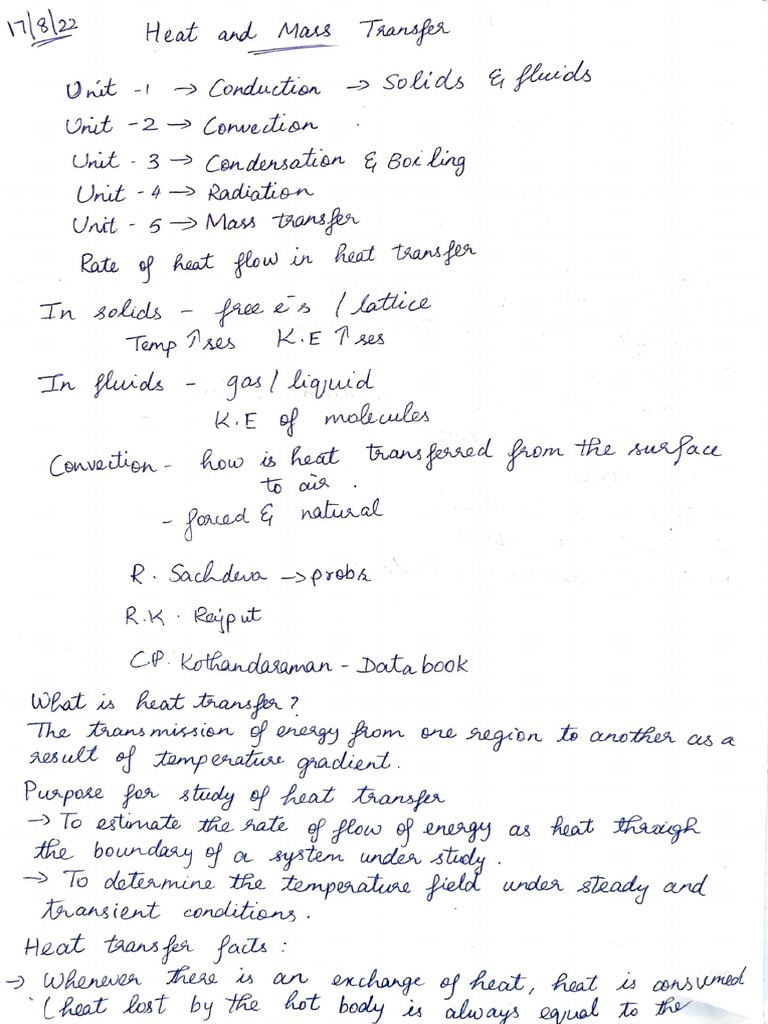 17/8/22
Heat and Mass Transfer
Unit -1 → Conduction → Solids & fluids
Unit -2 → Convection
Unit - 3 → Condensation & Boiling
Unit -4 → Radiation
Unit - 5 → Mass transfer
Rate of heat flow in heat transfer
In solids - free e⁻s / lattice
Temp ↑ses K.E ↑ses
In fluids - gas / liquid
K.E of molecules
Convection - how is heat transferred from the surface
to air.
- forced & natural
R. Sachdeva → probs
R.K. Rajput
C.P. Kothandaraman - Data book
What is heat transfer?
The transmission of energy from one region to another as a
result of temperature gradient.
Purpose for study of heat transfer
→ To estimate the rate of flow of energy as heat through
the boundary of a system under study.
→ To determine the temperature field under steady and
transient conditions.
Heat transfer facts :
→ Whenever there is an exchange of heat, heat is consumed
(heat lost by the hot body is always equal to the